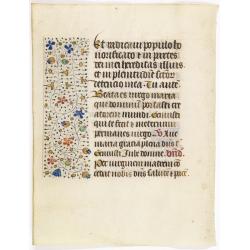 Et radicaui populo ho
norificato et in partes
dei mei hereditas illius
et in plenitudine scōr
detencio mea Tu aute
Beata es virgo maria
que dominum portasti cre
atorem mundi Genuisti
qui te fecit et in eternum
permanes virgo Aue
maria gratia plena dn̄s
Genuisti
Per virginem matrem cō
cedat nobis dn̄s salutē et pacē